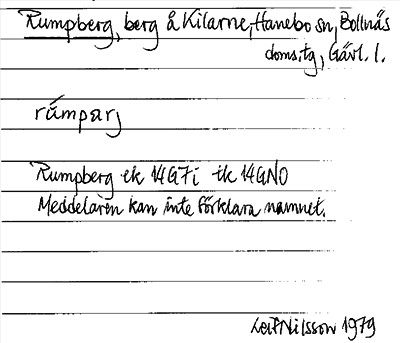 Rumpberg, berg å Kilarne, Hanebo sn, Bollnäs
doms.tg, Gävl. l.
rúmparj
Rumpberg ek 14G7i tk 14GNO
Meddelaren kan inte förklara namnet.
Leif Nilsson 1979